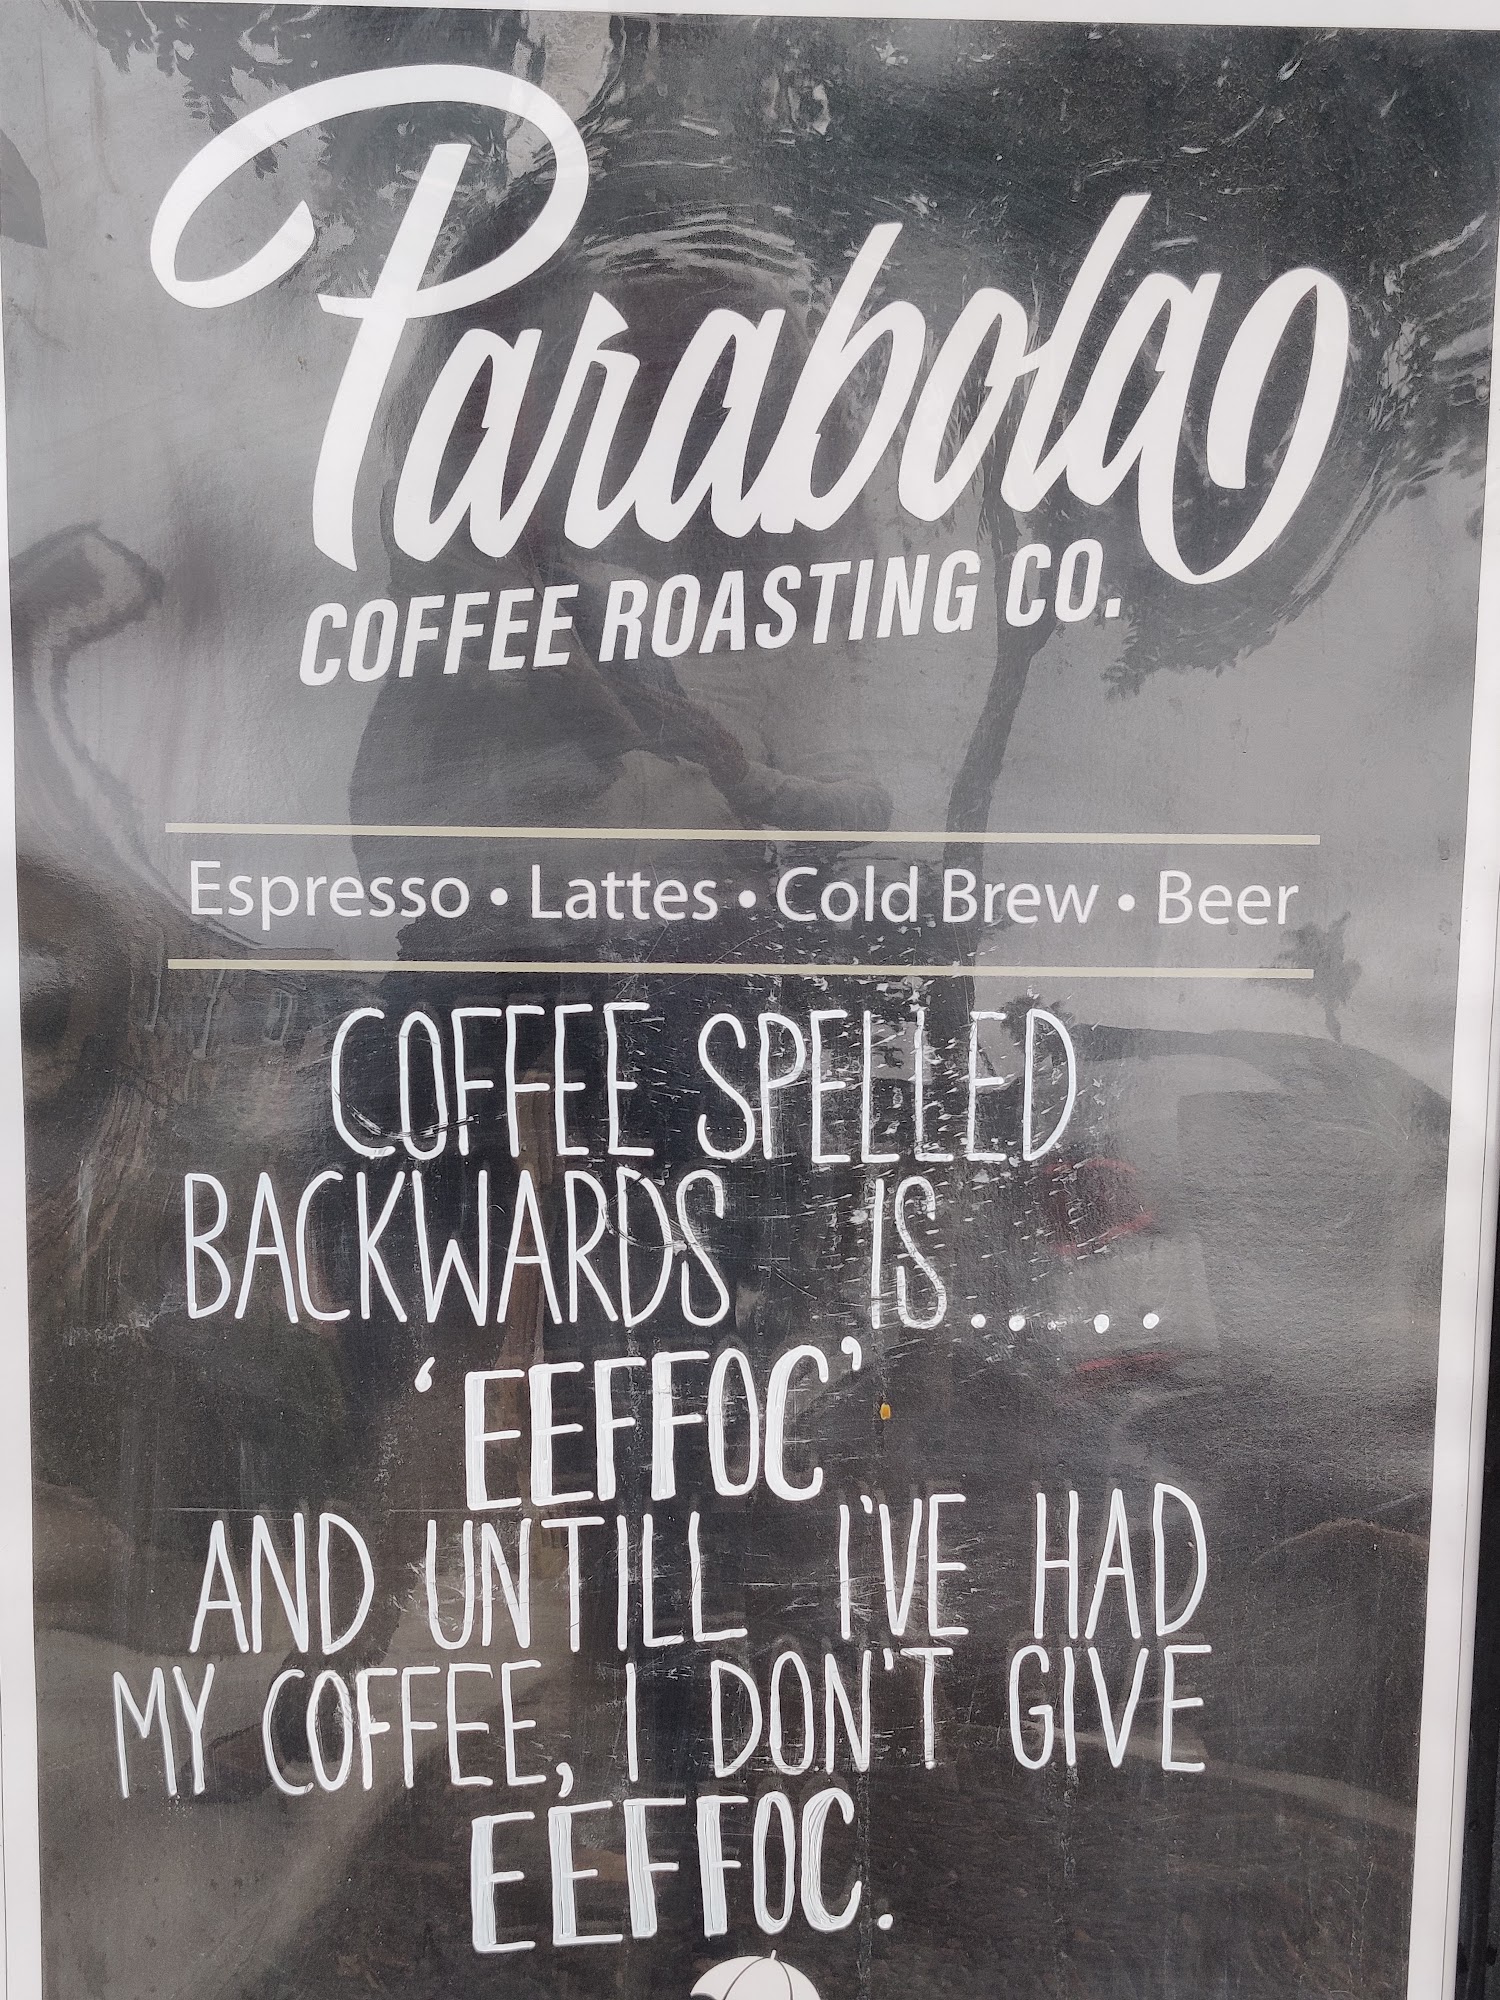 Parabola
COFFEE ROASTING CO.
Espresso • Lattes • Cold Brew • Beer
COFFEE SPELLED
BACKWARDS IS.....
'EEFFOC'
AND UNTILL I'VE HAD
MY COFFEE, I DON'T GIVE
EEFFOC.